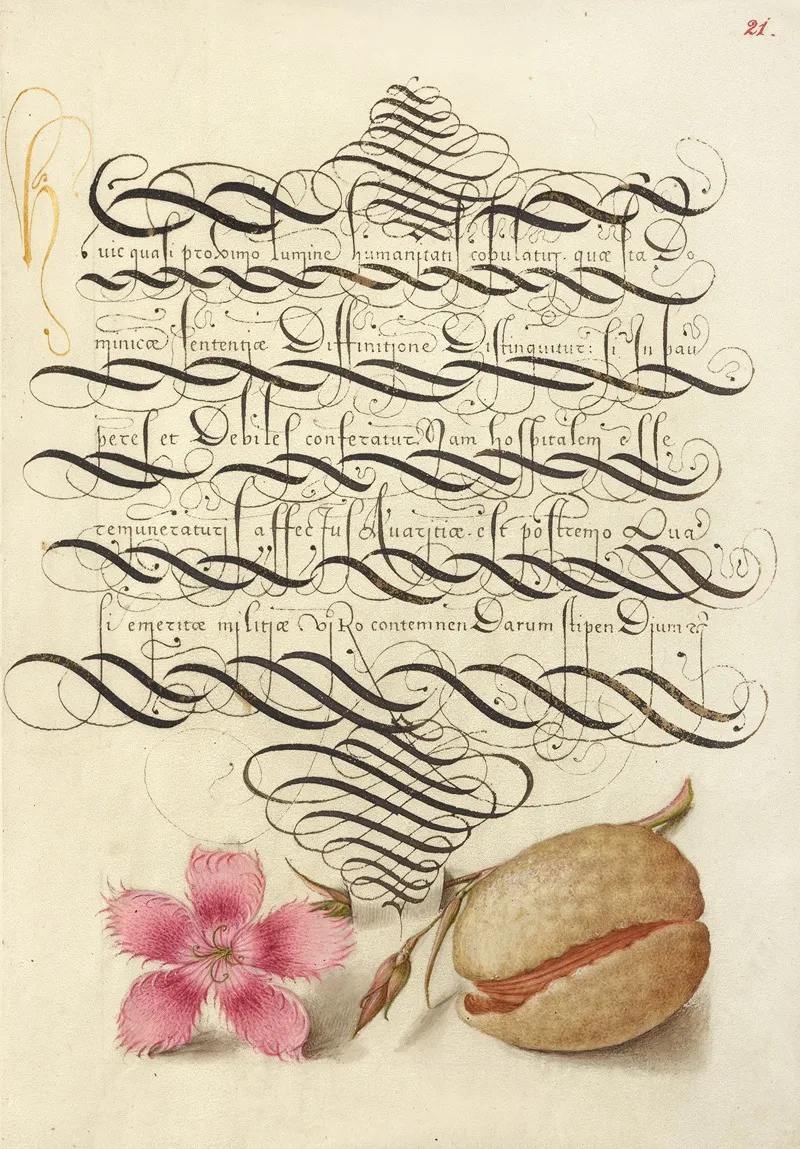 21.
Huic quasi proximo lumine humanitati copulatur. quæ ita Do
minicæ sententiæ Diffinitione Distinguitur: si In pau
peres et Debiles conferatur. Nam hospitalem esse
remuneraturis affectus Avaritiæ. est postremo Qua
si emeritæ militiæ viRo contemnenDarum stipenDium